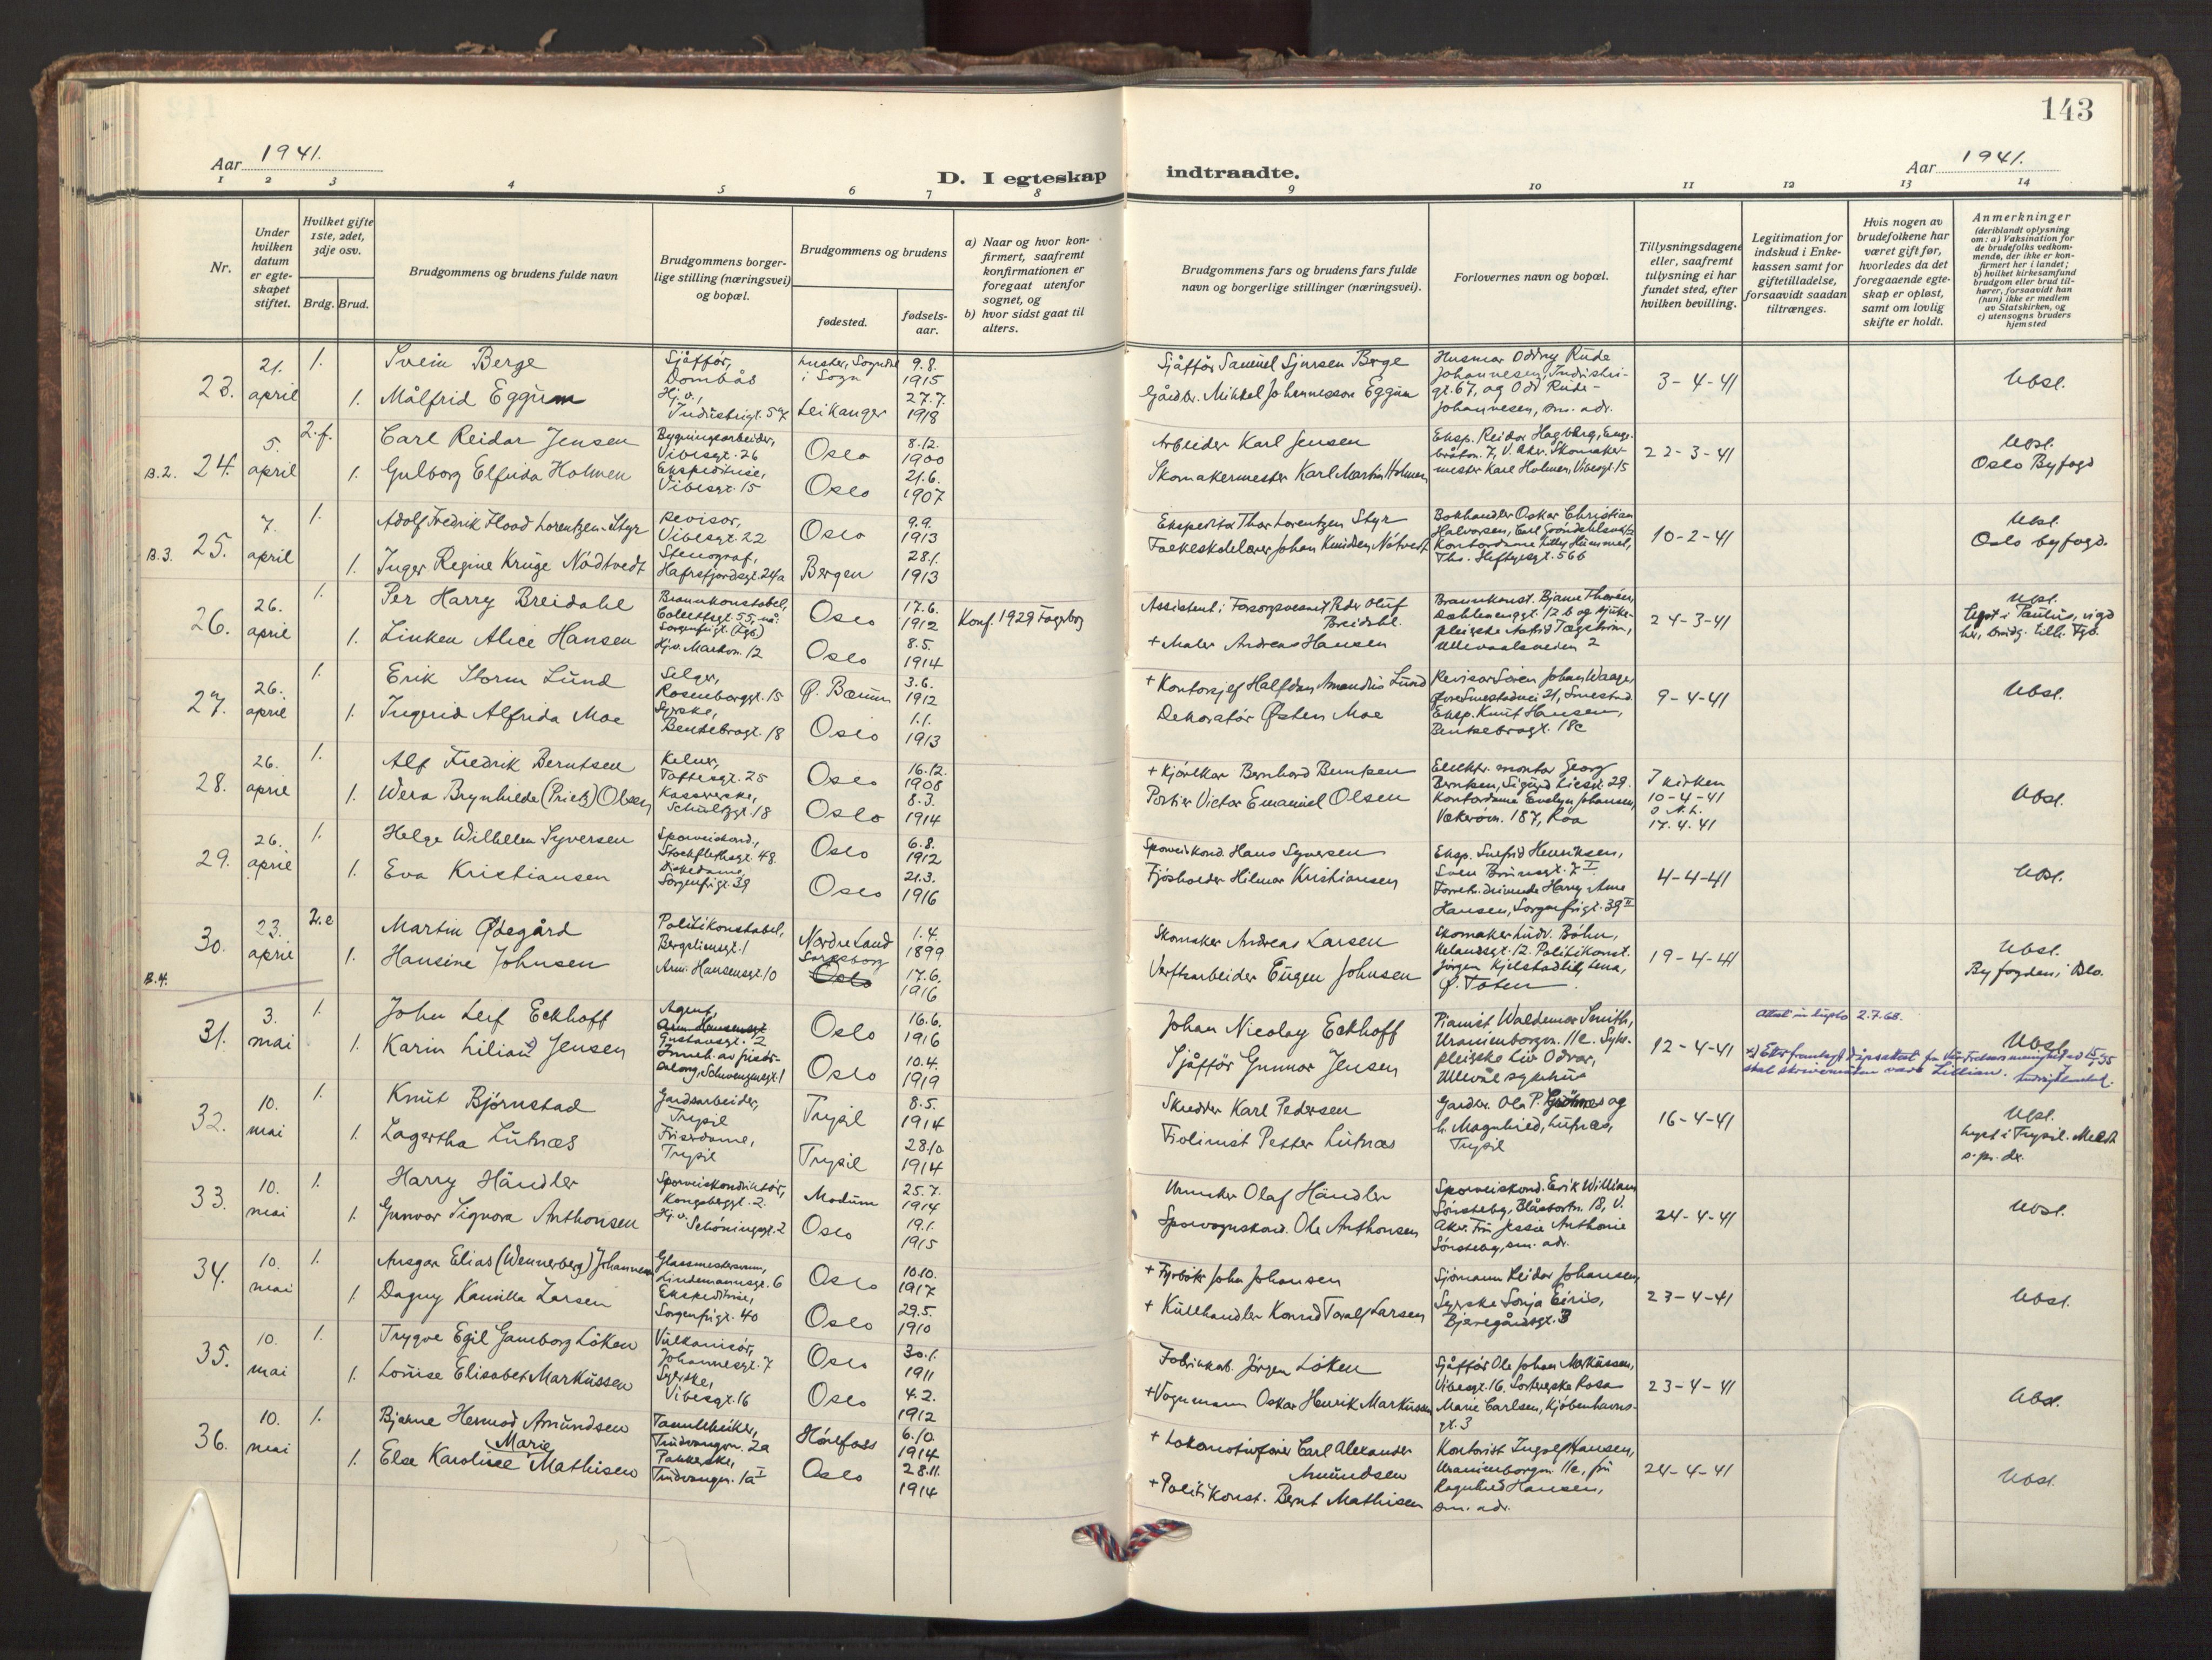 143
Aar 1941.
D. I egteskap indtraadte.
Aar 1941.
1 2 3 4 5 6 7 8 9 10 11 12 13 14
Nr.
Under hvilken datum er egteskapet stiftet.
Hvilket gifte 1ste, 2det, 3dje osv.
Brdg. Brud.
Brudgommens og brudens fulde navn
Brudgommens borgerlige stilling (næringsvei) og bopæl.
Brudgommens og brudens
fødested.
fødselsaar.
a) Naar og hvor konfirmert, saafremt konfirmationen er foregaat utenfor sognet, og
b) hvor sidst gaat til alters.
Brudgommens fars og brudens fars fulde navn og borgerlige stillinger (næringsvei).
Forlovernes navn og bopæl.
Tillysningsdagene eller, saafremt tillysning ei har fundet sted, efter hvilken bevilling.
Legitimation for indskud i Enkekassen samt for giftetilladelse, forsaavidt saadan tiltrænges.
Hvis nogen av brudefolkene har været gift før, hvorledes da det foregaaende egteskap er opløst, samt om lovlig skifte er holdt.
Anmerkninger (deriblandt oplysning om: a) Vaksination for de brudefolks vedkommende, der ikke er konfirmert her i landet; b) hvilket kirkesamfund brudgom eller brud tilhører, forsaavidt han (hun) ikke er medlem av Statskirken, og c) utensogns bruders hjemsted
23. 21. april 1. Svein Berge Sjåffør, Dombås Luster, Sogndal i Sogn 9.8. 1915
1. Målfrid Eggum Hj.v., Industrigt. 57 Leikanger 27.7. 1918
Sjåffør Samuel Sjursen Berge
Gårdbr. Mikkel Johannesson Eggum
Husmor Oddny Rude Johannesen, Industrigt. 67, og Odd Rude-Johannesen, sm. adr.
3-4-41
Ubsl.
B.2. 24. 5. april 2.f. Carl Reidar Jensen Bygningsarbeider, Vibesgt. 26 Oslo 8.12. 1900
1. Gulborg Elfrida Holmen Ekspeditrise, Vibesgt. 15 Oslo 21.6. 1907
Arbeider Karl Jensen
Skomakermester Karl Martin Holmen
Eksp. Reidar Hagberg, 7, V. Aker. Skomakermester Karl Holmen, Vibesgt. 15
22-3-41
Ubsl. Oslo Byfogd
B.3. 25. 7. april 1. Adolf Fredrik Flood Lorentzen-Styr Revisor, Vibesgt. 22 Oslo 9.9. 1913
1. Inger Regine Krüge Nödtvedt Stenograf, Hafrsfjordsgt. 24a Bergen 28.1. 1913
Ekspeditør Thor Lorentzen Styr
Folkeskolelærer Johan Knudsen Nötvedt
Bokhandler Oskar Christian Halvorsen, Kontordame Lilly Hummel, Ths. Heftyesgt. 56b
10-2-41
Ubsl. Oslo byfogd.
26. 26. april 1. Per Harry Breidahl Brannkonstabel, Collettsgt. 55, nå: Sorgenfrigt. (Fgb.) Oslo 17.6. 1912 Konf. 1929 Fagerborg
1. Linken Alice Hansen Hj.v. Markvn. 12 Oslo 8.5. 1914
Assistent i Forsorgsvesenet Peder Oluf Breidahl.
+ Maler Andreas Hansen
Brannkonst. Bjarne Thoresen, Dahlenenggt. 12 b og sykepleierske Astrid Tægström, Ullevaalsveien 2
24-3-41
Ubsl. Lyst i Paulus, vigd her, brudg. tilh. Fgb.
27. 26. april 1. Erik Storm Lund Selger, Rosenborggt. 15 Ø. Bærum 3.6. 1912
1. Ingerid Alfrida Moe Syerske, Bentsebrogt. 18 Oslo 1.1. 1913
+ Kontorsjef Halfdan Amandus Lund
Dekoratör Østen Moe
Revisor Sören Johan Waager, Øvre Smestadvei 21, Smestad. Eksp. Knut Hansen, Bentsebrogt. 18c
9-4-41
Ubsl.
28. 26. april 1. Alf Fredrik Berntsen Kelner, Toftesgt. 25 Oslo 16.12. 1908
1. Wera Brynhilde (Prietz) Olsen Kassererske, Schultzgt. 18 Oslo 8.3. 1914
+ Kjörekar Bernhard Berntsen
Portier Victor Emanuel Olsen
Elektr. montör Georg Berntsen, Sigurd Liesn. 29. Kontordame Evelyn Johansen, Vækerövn. 187, Röa
I kirken 10-4-41 17.4.41
Ubsl.
29. 26. april 1. Helge Wilhelm Syversen Sporveiskond., Stockflethsgt. 48. Oslo 6.8. 1912
1. Eva Kristiansen Diskedame, Sorgenfrigt. 39 Oslo 21.3. 1916
Sporveiskond. Hans Syversen
Fjösholder Hilmar Kristiansen
Eksp. Snefrid Henriksen, Sven Brunsgt. 7 I Forretn. drivende Harry Arne Hansen, Sorgenfrigt. 39 II
4-4-41
Ubsl.
B.4. 30. 23. april 2.e Martin Ødegård Politikonstabel, Bergsliensgt. 1 Nordre Land 1.4. 1899
1. Hansine Johnsen Arm. Hansensgt. 10 Sarpsborg Oslo 17.6. 1916
Skomaker Andreas Larsen
Verftsarbeider Eugen Johnsen
Skomaker Ludv. Böhn, Helandsgt. 12. Politikonst. Jörgen Kjelstadli, Lena, Ø. Toten
19-4-41
Ubsl. Byfogden i Oslo.
31. 3. mai 1. John Leif Eckhoff Agent, Arm. Hansensgt Gustavsgt. 2 Oslo 16.6. 1916
1. Karin Lilian Jensen Inneh. av frisörsalong, Schwensensgt. 1 Oslo 10.4. 1919
Johan Nicolay Eckhoff
Sjåffør Gunnar Jensen
Pianist Waldemar Smith, Uranienborgvn. 11c. Sykepleierske Liv Odvar, Ullevål sykehus
12-4-41
2.7.68.
Ubsl.
x) Efter framlagt dåpsattest fra Vår Frelsers menighet skal skrivemåten være Lillian.
32. 10. mai 1. Knut Bjørnstad Gardsarbeider, Trysil Trysil 8.5. 1914
1. Lagertha Lutnæs Friserdame, Trysil Trysil 28.10 1914
Skredder Karl Pedersen
Fiolinist Petter Lutnæs
Gardbr. Ola P. og h. Magnhild, Lutnæs, Trysil
16-4-41
Ubsl. Lyst i Trysil. Meldt s.pr. der.
33. 10. mai 1. Harry Händler Sporveiskonduktör, Kongsberggt. 2. Modum 25.7. 1914
1. Gunvor Signora Anthonsen Hj.v. Schöningsgt. 2 Oslo 19.1. 1915
Urmaker Olaf Händler
Sporvognskond. Ole Anthonsen
Sporveiskond. Erik William Sönsteby, Blåsbortn. 13, V. Aker. Fru Jessie Anthonie Sönsteby, sm. adr.
24-4-41
Ubsl.
34. 10. mai 1. Ansgar Elias (Wennerberg) Johannesen Glassmestersvenn, Lindemannsgt. 6 Oslo 10.10. 1917
1. Dagny Kamilla Larsen Ekspeditrise, Sorgenfrigt. 40 Oslo 29.5. 1910
+ Fyrböter John Johansen
+ Kullhandler Konrad Toralf Larsen
Sjömann Reidar Johansen, Syerske Sonja Eiriis, Bjerregårdsgt. 3
23-4-41
Ubsl.
35. 10. mai 1. Trygve Egil Gamborg Löken Vulkanisör, Johannesgt. 7 Oslo 30.1. 1911
1. Louise Elisabet Markussen Syerske, Vibesgt. 16 Oslo 4.2. 1912
Fabrikkarb. Jörgen Löken
+ Vognmann Oskar Henrik Markussen
Sjåffør Ole Johan Markussen, Vibesgt. 16. Sorterske Rosa Marie Carlsen, Kjöbenhavnsgt. 3
23-4-41
Ubsl.
36. 10. mai 1. Bjarne Hermod Amundsen Tanntekniker, Trudvangvn. 2a Hönefoss 6.10. 1914
1. Else Karoline Marie Mathisen Pakkerske, Trudvangvn. 1a I Oslo 28.11. 1914
+ Lokomotivförer Carl Alexander Amundsen
+ Politikonst. Bernt Mathisen
Kontorist Ingolf Hansen, Uranienborgvn. 11c, fru Ragnhild Hansen, sm. adr.
24-4-41
Ubsl.